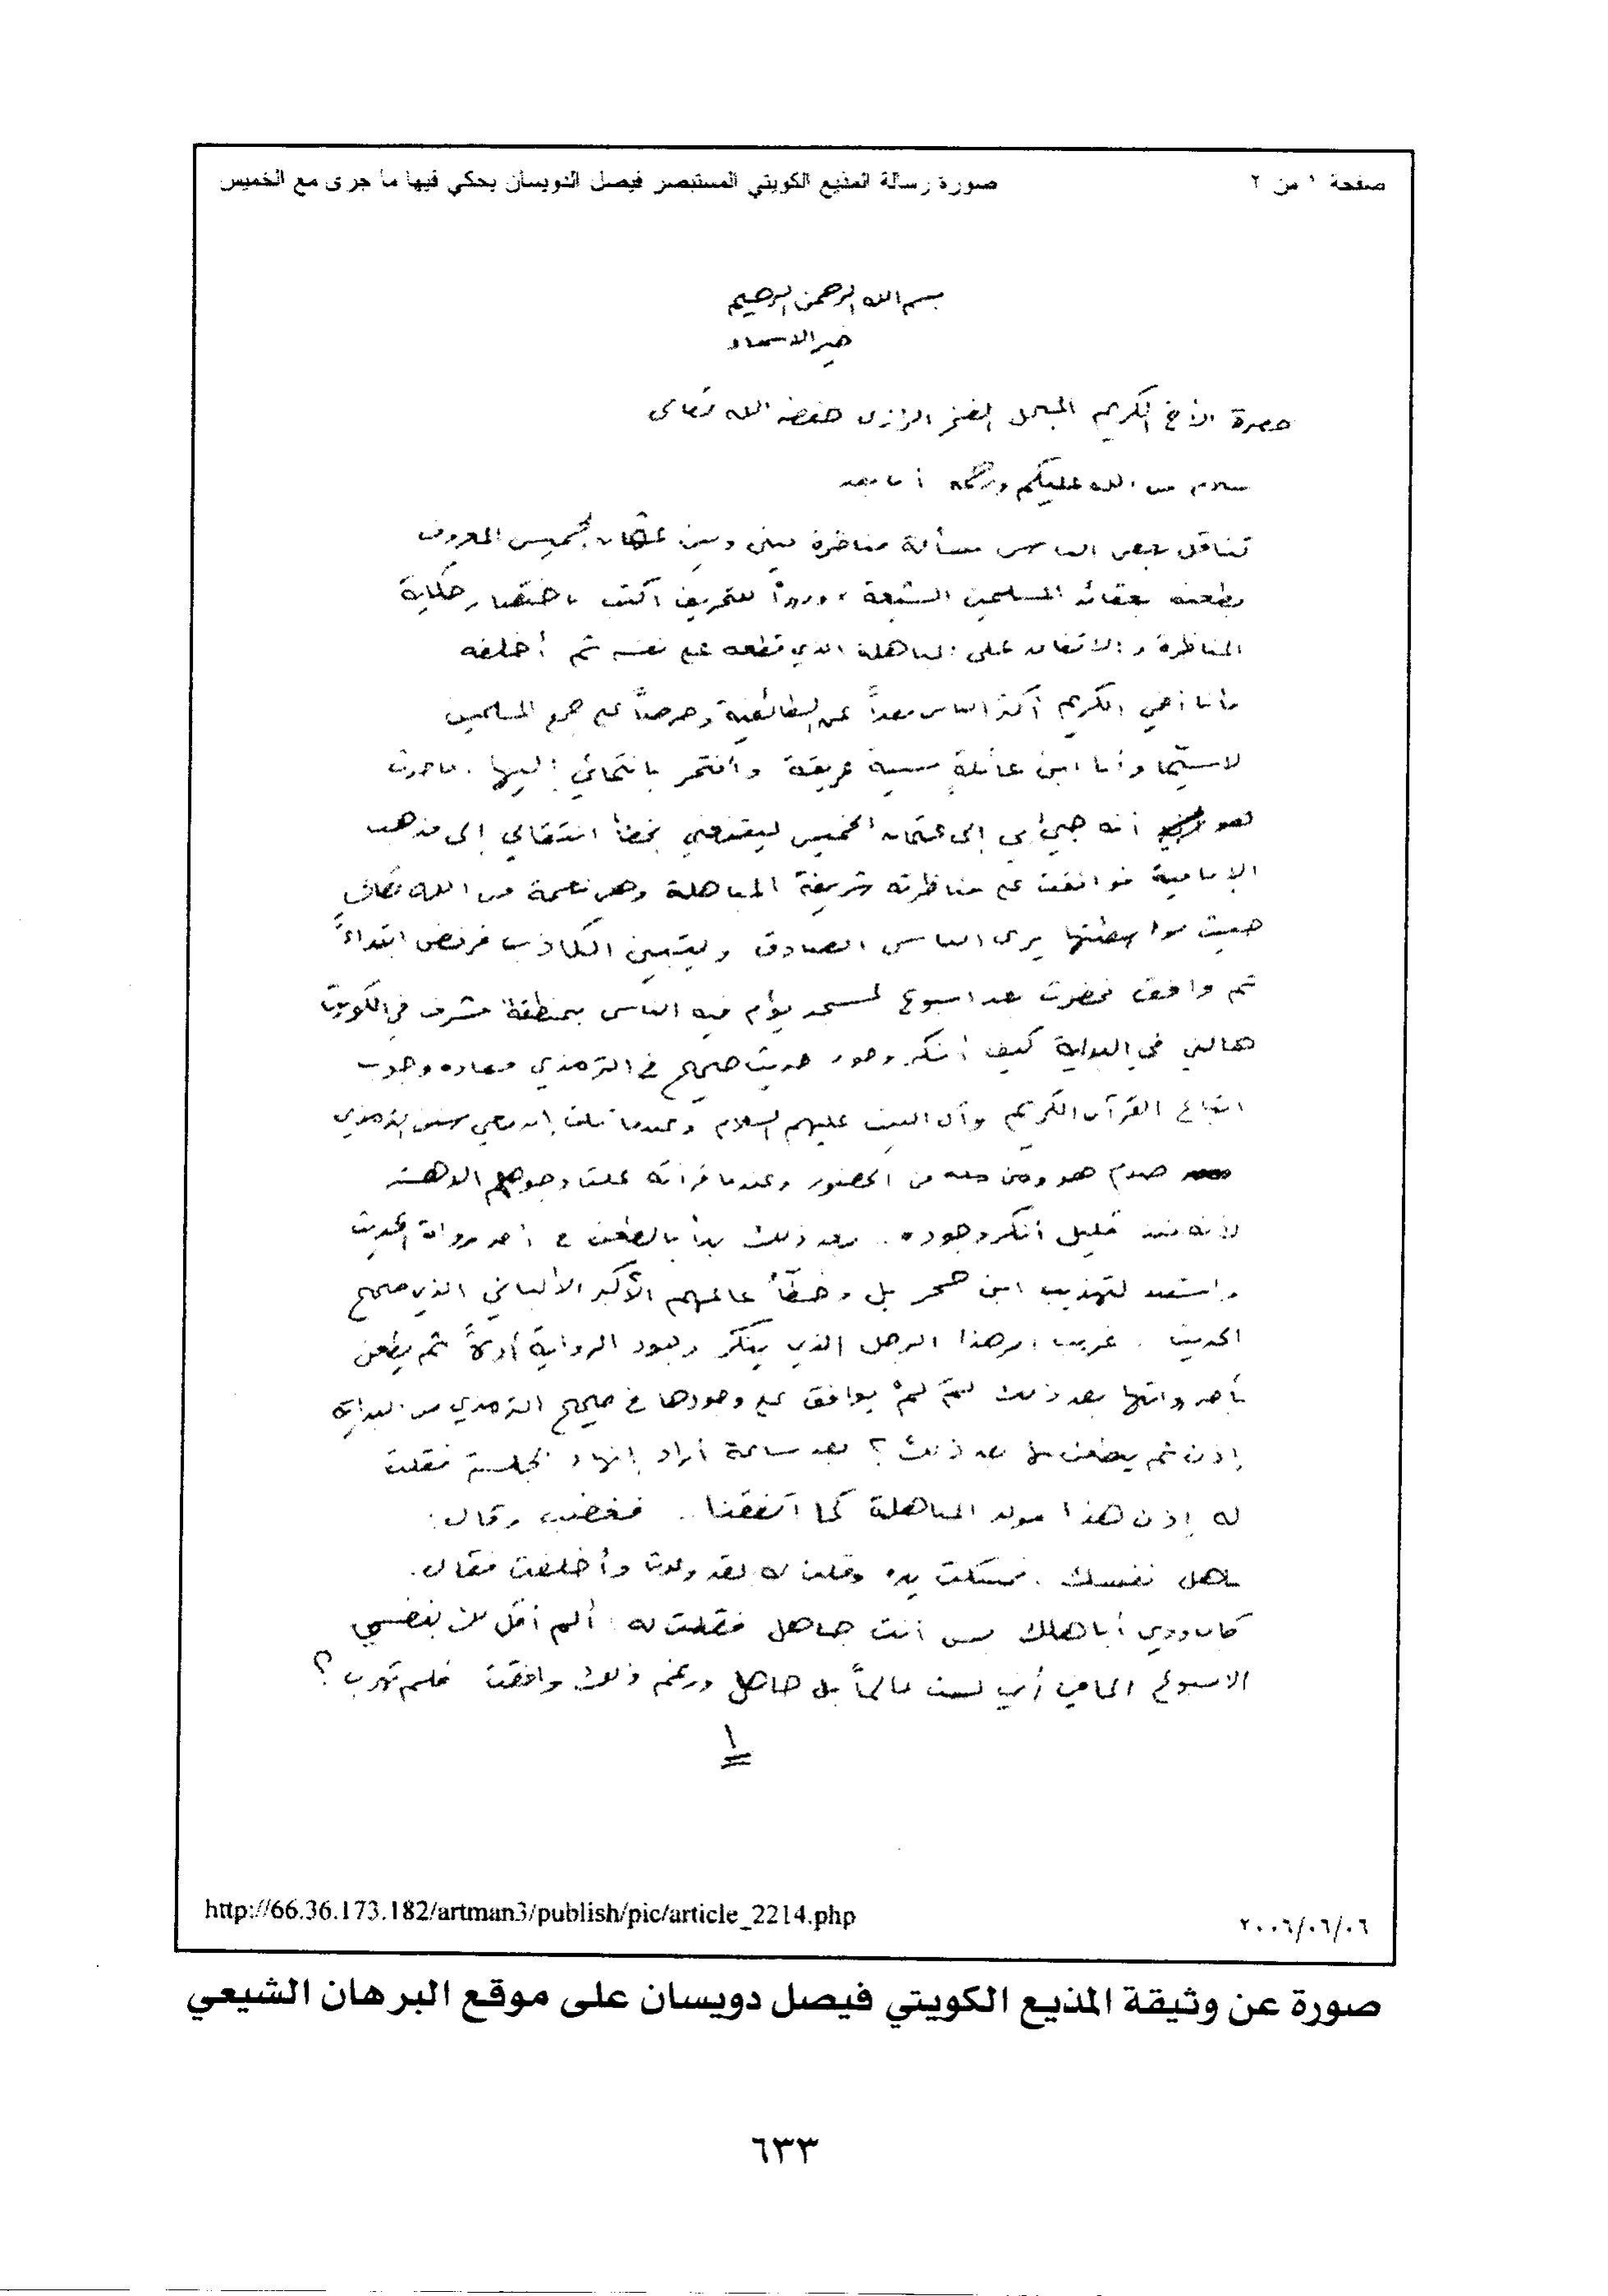 صفحة ١ من ٢
صورة رسالة المذيع الكويتي المستبصر فيصل الدويسان يحكي فيها ما جرى مع الخميس
بسم الله الرحمن الرحيم
خير الاسماء
حضرة الأخ الكريم المبجل الفخر الرازي حفظه الله تعالى
سلام من الله عليكم ورحمة أما بعد
تناقل بعض الناس مسألة مناظرة بيني وبين عثمان الخميس المعروف
بطعنه بعقائد المسلمين الشيعة، ودرءاً للتحريف اكتب باختصار حكاية
المناظرة والاتفاق على المباهلة الذي قطعه على نفسه ثم أخلفه
وأنا أخي الكريم أكثر الناس بعداً عن الطائفية وحرصاً على جمع المسلمين
لاسيّما وأنا ابن عائلةٍ سنية عريقة وأفتخر بانتمائي إليها.
هو أنه جيء بي إلى عثمان الخميس ليقنعني بخطأ انتقالي إلى مذهب
الإمامية فوافقت على مناظرته شريطة المباهلة وهي نعمة من الله تعالى
حيث بواسطتها يرى الناس الصادق ويتبين الكاذب فرفض ابتداءً
ثم وافق فحضرت بعد اسبوع لمسجد يؤم فيه الناس بمنطقة مشرف في الكويت
في البداية كيف أنكر وجود حديث صحيح في الترمذي مفاده وجوب
اتباع القرآن الكريم وآل البيت عليهم السلام وعندما قلت إن معي سنن الترمذي
صدم هو ومن معه من الحضور وعندما قرأته علت وجوههم الدهشة
لأنه منذ قليل أنكر وجوده. بعد ذلك بدأ بالطعن في أحد رواة الحديث
واستعد لتهذيب ابن حجر بل وخطّأ عالمهم الأكبر الألباني الذي صحح
الحديث. غريب أمر هذا الرجل الذي ينكر وجود الرواية أولاً ثم يطعن
بأحد رواتها بعد ذلك لمَ لمْ يوافق على وجودها في صحيح الترمذي من البداية
إذن ثم يطعن بها بعد ذلك؟ بعد ساعة أراد إنهاء الجلسة فقلت
له إذن هذا موعد المباهلة كما اتفقنا.. فغضب وقال:
باهل نفسك. فمسكت يده وقلت له لقد وعدت وأخلفت فقال.
كان بودي أباهلك بس أنت جاهل فقلت له: ألم أقل لك بنفسي
الاسبوع الماضي أني لست عالماً بل جاهل ورغم ذلك وافقت فلم تهرب؟
١
http://66.36.173.182/artman3/publish/pic/article_2214.php
٢٠٠٦/٠٦/٠٦
صورة عن وثيقة المذيع الكويتي فيصل دويسان على موقع البرهان الشيعي
٦٣٣